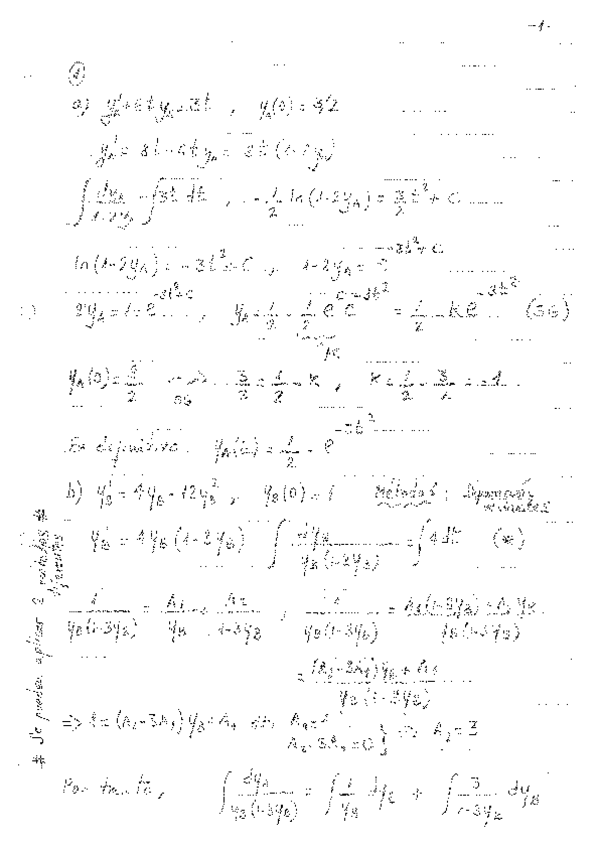 -1-
①
a) y'_A + 6t y_A = 3t , y_A(0) = 3/2
y'_A = 3t - 6t y_A = 3t (1-2y_A)
∫ dy_A / (1-2y_A) = ∫ 3t dt , -1/2 ln(1-2y_A) = 3/2 t² + C
ln(1-2y_A) = -3t² + C , 1-2y_A = e^{-3t²+C}
2y_A = 1 - e^{-3t²+C} , y_A = 1/2 - 1/2 e^C e^{-3t²} = 1/2 - K e^{-3t²} (SG)
y_A(0) = 3/2 SG 3/2 = 1/2 - K , K = 1/2 - 3/2 = -1
En definitiva y_A(t) = 1/2 - e^{-3t²}
b) y'_B = 4y_B - 12y_B² , y_B(0) = 1 Métodos :
y'_B = 4y_B (1-3y_B) ∫ dy_B / (y_B(1-3y_B)) = ∫ 4 dt (*)
1 / (y_B(1-3y_B)) = A_1 / y_B + A_2 / (1-3y_B) , 1 / (y_B(1-3y_B)) = (A_1(1-3y_B) + A_2 y_B) / (y_B(1-3y_B))
= ((A_2-3A_1) y_B + A_1) / (y_B(1-3y_B))
⇒ 1 = (A_2-3A_1) y_B + A_1 A_1 = 1
A_2 - 3A_1 = 0 } A_2 = 3
Por tanto, ∫ dy_B / (y_B(1-3y_B)) = ∫ 1/y_B dy_B + ∫ 3 / (1-3y_B) dy_B
# Se pueden aplicar 2 métodos #
distintos